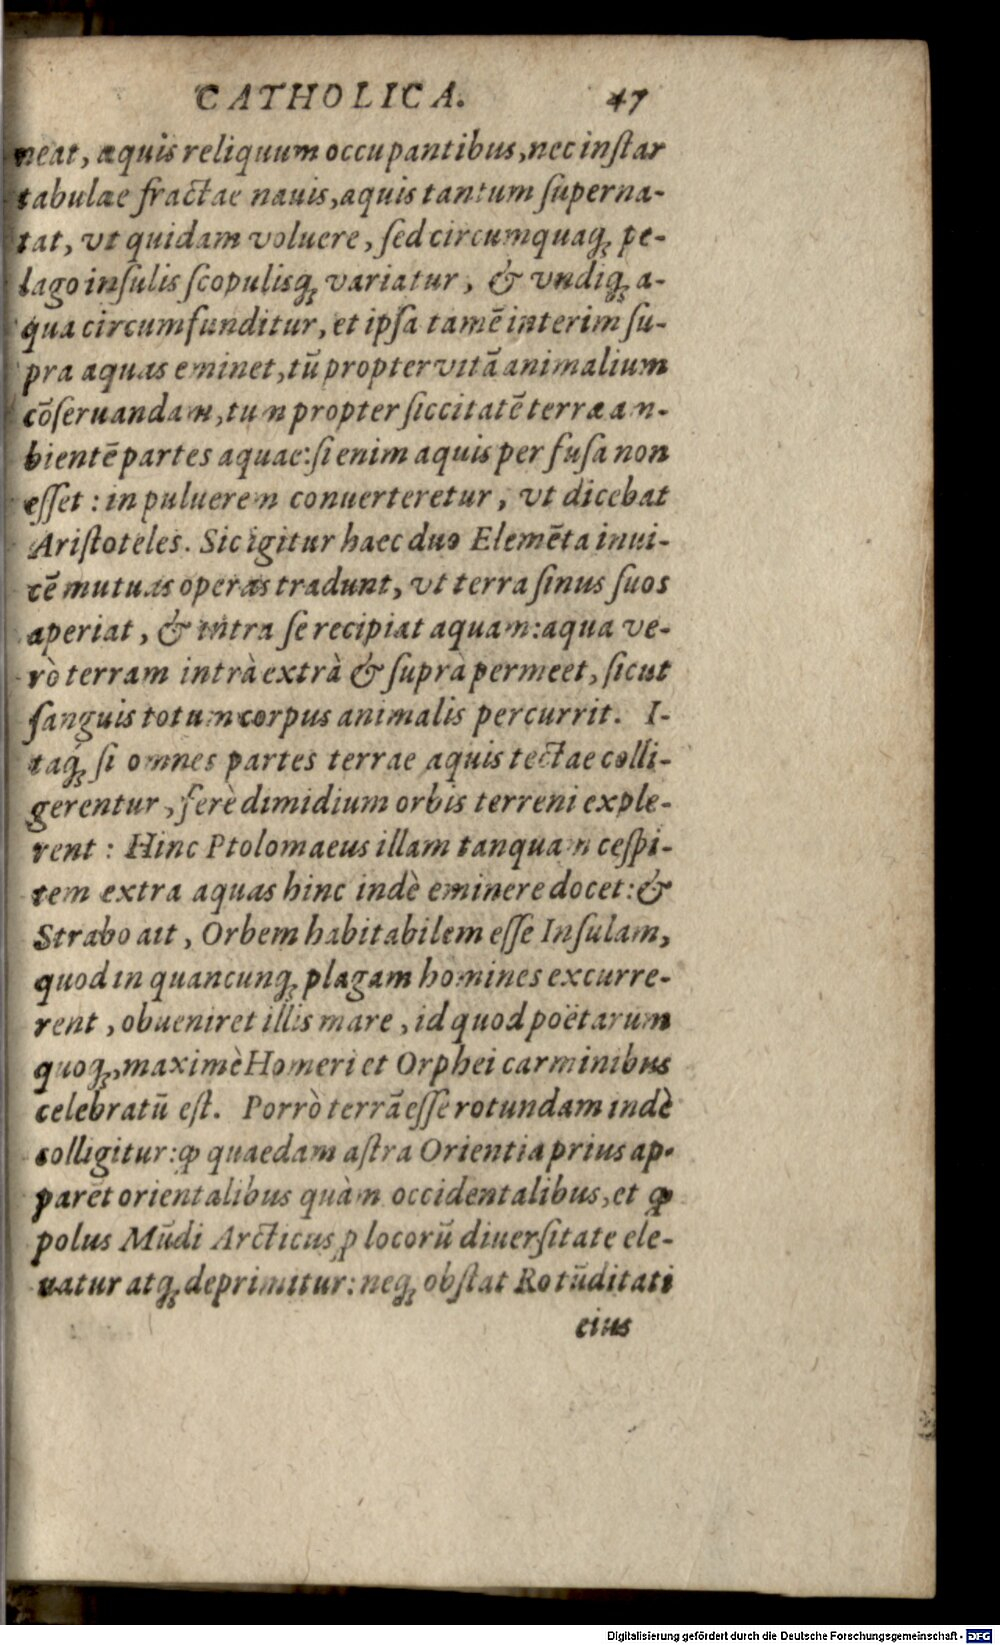 CATHOLICA. 47
neat, aquis reliquum occupantibus, nec inſtar
tabulae fractae nauis, aquis tantum ſuperna-
tat, vt quidam voluere, ſed circumquaq; pe-
lago inſulis ſcopulisq; variatur, & vndiq; a-
qua circumfunditur, et ipſa tamē interim ſu-
pra aquas eminet, tū propter vitā animalium
cōſeruandam, tum propter ſiccitatē terrae am-
bientē partes aquae: ſi enim aquis perfuſa non
eſſet: in puluerem conuerteretur, vt dicebat
Ariſtoteles. Sic igitur haec duo Elemēta inui-
cē mutuas operas tradunt, vt terra ſinus ſuos
aperiat, & intra ſe recipiat aquam: aqua ve-
rò terram intrà extrà & ſuprà permeet, ſicut
ſanguis totum corpus animalis percurrit. I-
taq; ſi omnes partes terrae aquis tectae colli-
gerentur, ferè dimidium orbis terreni exple-
rent: Hinc Ptolomaeus illam tanquam ceſpi-
tem extra aquas hinc indè eminere docet: &
Strabo ait, Orbem habitabilem eſſe Inſulam,
quod in quancunq; plagam homines excurre-
rent, obueniret illis mare, id quod poëtarum
quoq;, maximè Homeri et Orphei carminibus
celebratū eſt. Porrò terrā eſſe rotundam indè
colligitur: ꝙ quaedam aſtra Orientia prius ap-
parēt orientalibus quàm occidentalibus, et ꝙ
polus Mūdi Arcticus ꝓ locorū diuerſitate ele-
uatur atq; deprimitur: neq; obſtat Rotūditati
eius
Digitalisierung gefördert durch die Deutsche Forschungsgemeinschaft - DFG